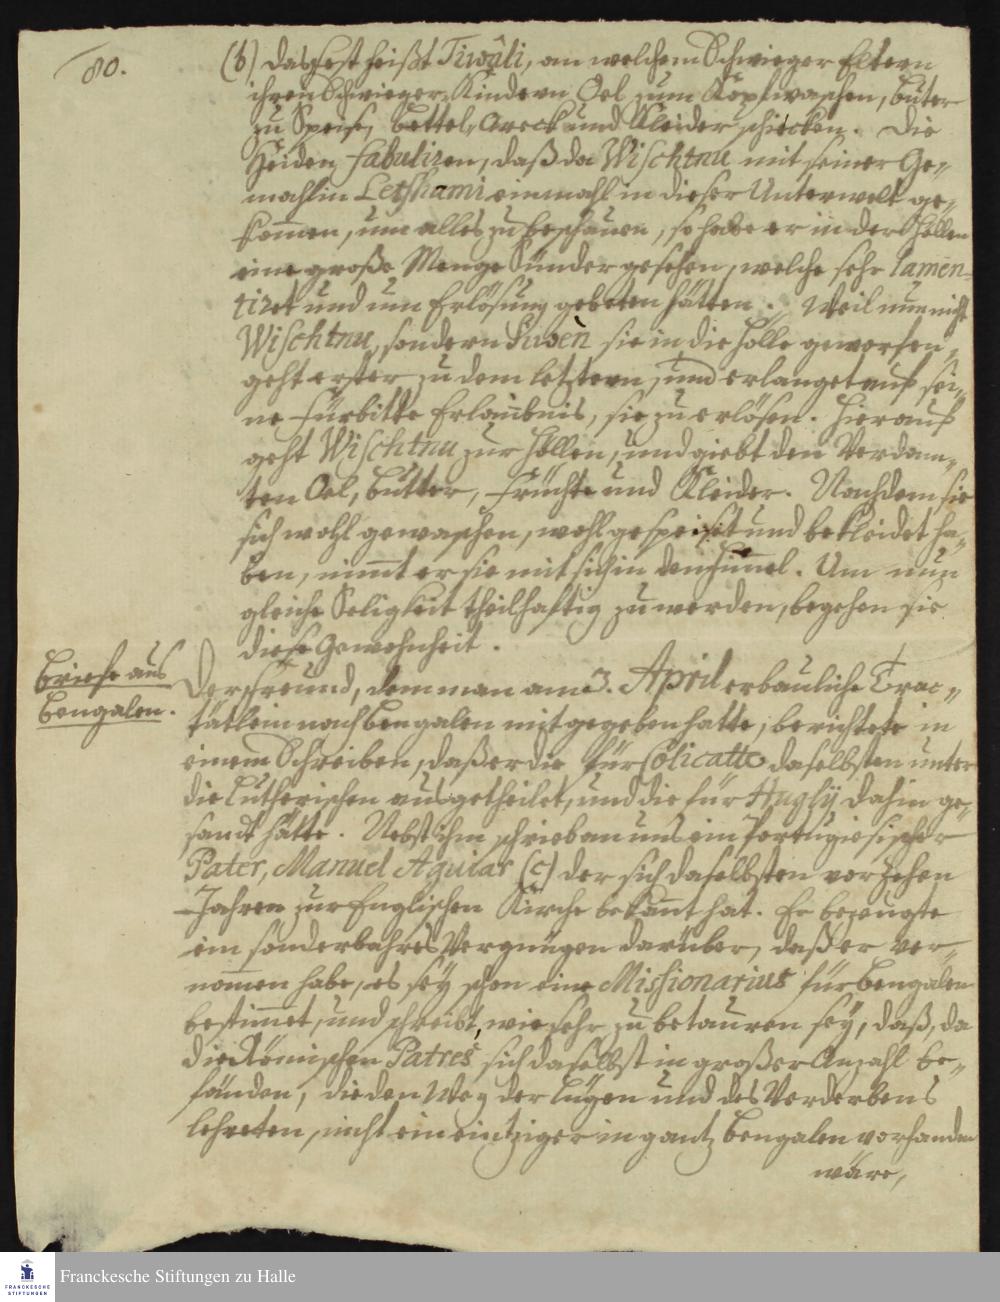 80.
(b) Das Fest heißt Tiwâli, an welchem Schwieger Eltern
ihren Schwieger-Kindern Oel zum Kopfwaschen, Buter
zu Speise, Bettel, Areck und Kleider schicken. Die
Heiden fabuliren, daß da Wischtnu mit seiner Ge-
mahlin Letshami einmahl in dieser Unterwelt ge-
kommen, um alles zu beschauen, so habe er in der Hellen
eine große Menge Sünder gesehen, welche sehr lamen-
tiret und um Erlösung gebeten hätten. Weil nun nicht
Wischtnu, sondern Siwen sie in die Hölle geworfen,
geht erster zu dem letztern, und erlanget auf sei-
ne Fürbitte Erlaubnis, sie zu erlösen. Hierauf
geht Wischtnu zur Höllen, und giebt den Verdam-
ten Oel, Butter, Früchte und Kleider. Nachdem sie
sich wohl gewaschen, wohl gespeiset und bekleidet ha-
ben, nimmt er sie mit sich in den Himmel. Um nun
gleiche Seligkeit theilhaftig zu werden, begehen sie
diese Gewohnheit.
Briefe aus
Bengalen.
Der Freund, dem man am 3. April erbauliche Trac-
tätlein nach Bengalen mitgegeben hatte, berichtete in
einem Schreiben, daß er die für Colicatte daselbsten unter
die Lutherischen ausgetheilet, und die für Hugly dahin ge-
sandt hätte. Nebst ihm schrieb an uns ein Portugiesischer
Pater, Manuel Aguiar (c) der sich daselbsten vor zehen
Jahren zur Englischen Kirche bekannt hat. Er bezeugte
ein sonderbahres Vergnügen darüber, daß er ver-
nommen habe, es sey schon eine Missionarius für Bengalen
bestimmet, und schreibt, wie sehr zu betauren sey, daß, da
die Römischen Patres sich daselbst in großer Anzahl be-
fänden, die den Weg der Lügen und des Verderbens
lehreten, nicht ein eintziger in gantz Bengalen vorhanden
wäre,
Franckesche Stiftungen zu Halle
FRANCKESCHE
STIFTUNGEN